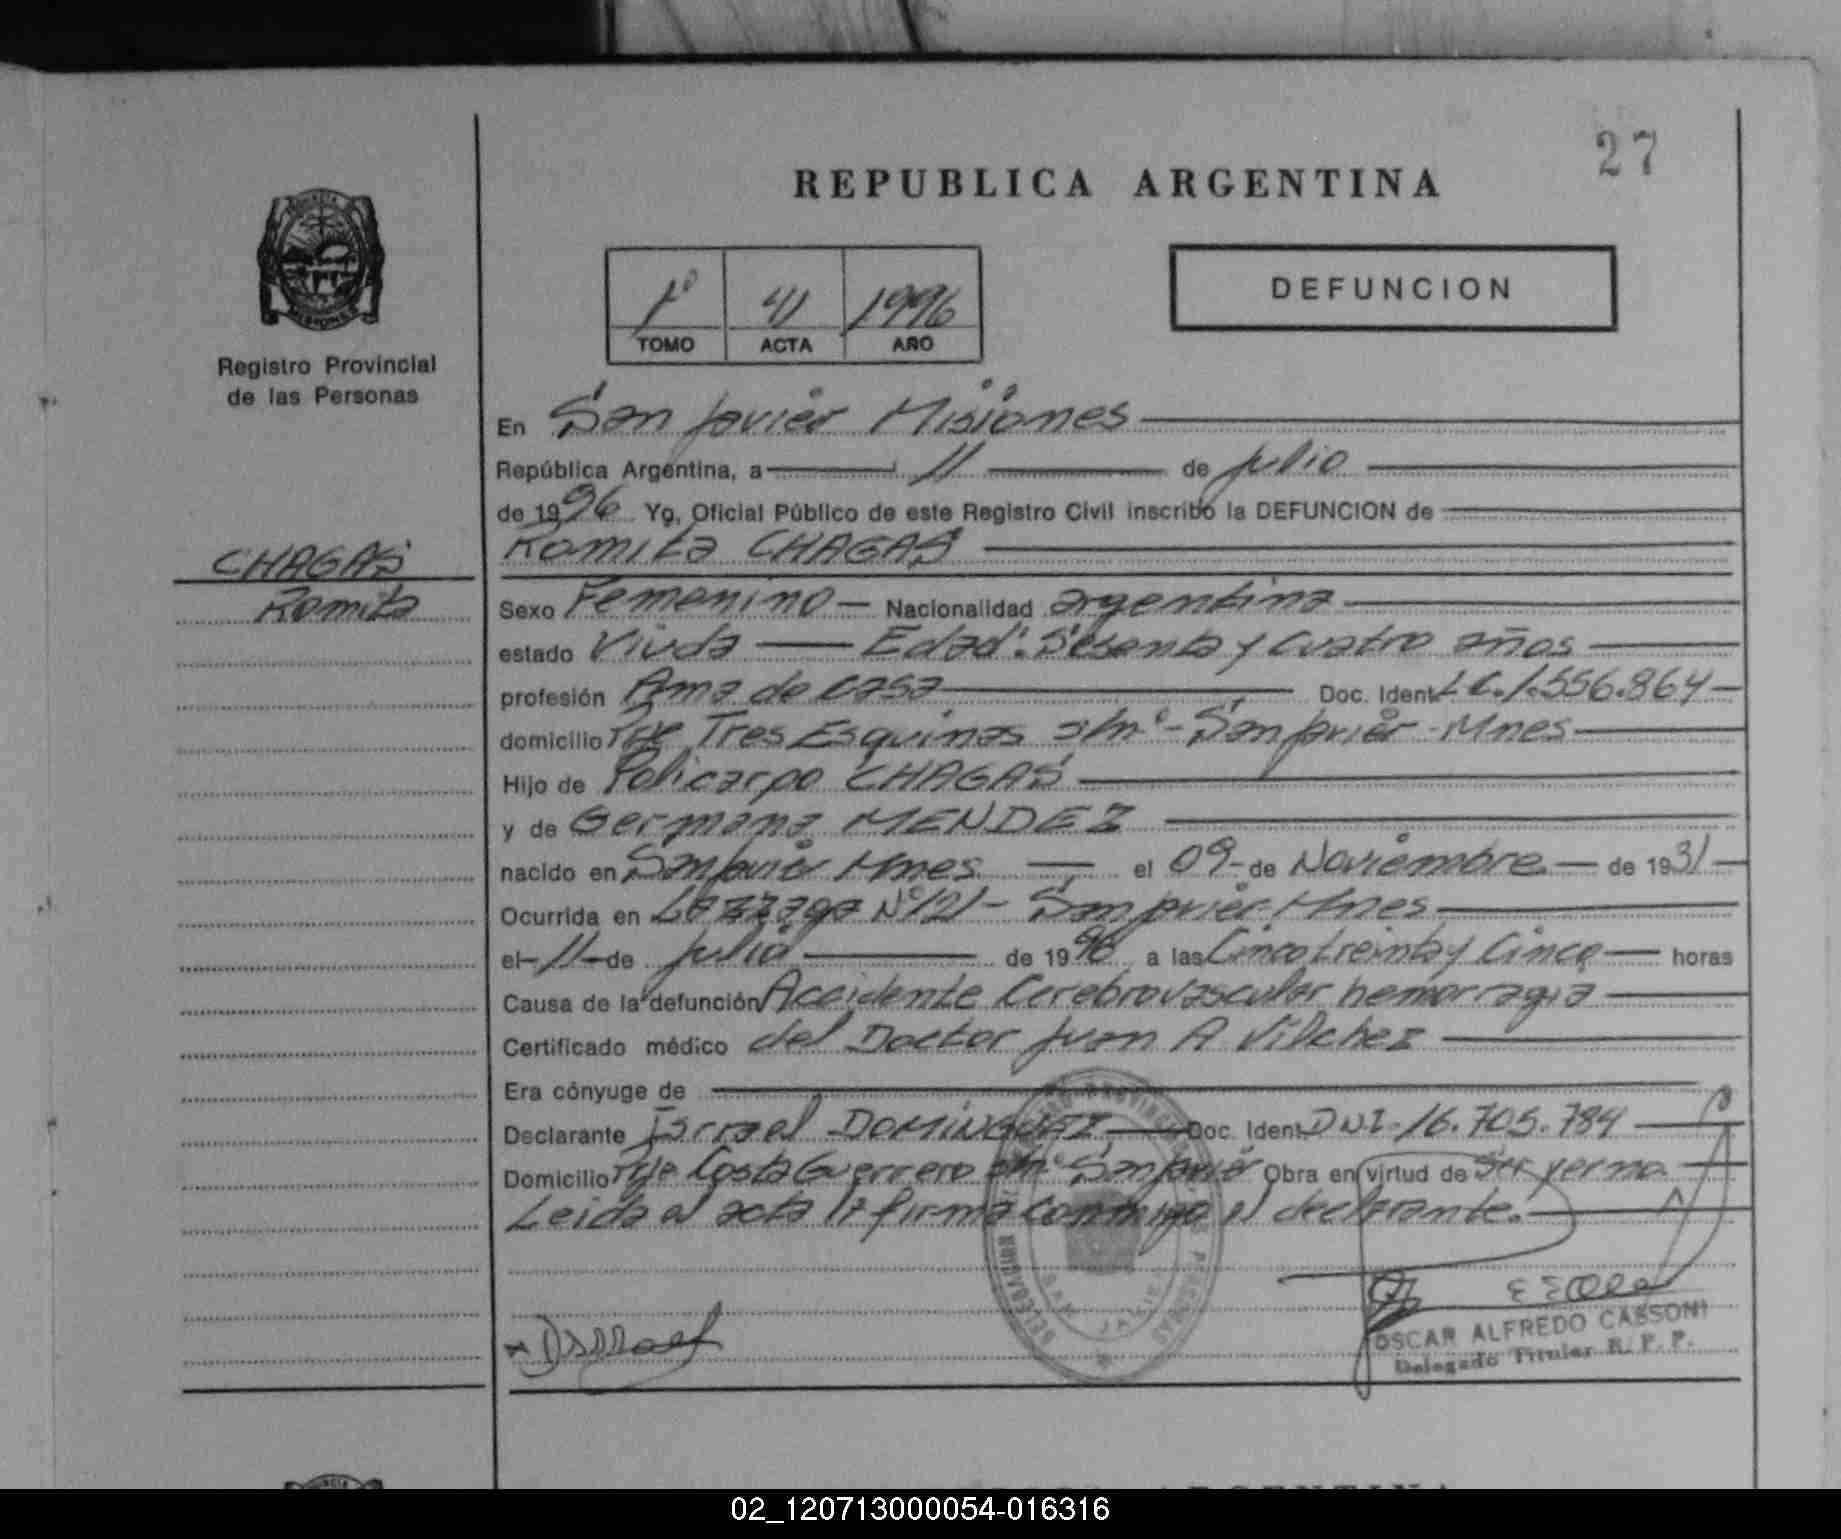 27
REPUBLICA ARGENTINA
PROVINCIA
MISIONES
Registro Provincial
de las Personas
1º 41 1996
TOMO ACTA AÑO
DEFUNCION
En San Javier Misiones
República Argentina, a 11 de julio
de 1996 Yo, Oficial Público de este Registro Civil inscribo la DEFUNCION de
Romita CHAGAS
CHAGAS
Romita
Sexo Femenino - Nacionalidad argentina
estado Viuda - Edad: Sesenta y cuatro años
profesión Ama de casa Doc. Ident L.C. 1.556.864
domicilio Pje Tres Esquinas s/nº - San Javier - Mnes
Hijo de Policarpo CHAGAS
y de Germana MENDEZ
nacido en San Javier Mnes el 09 - de Noviembre - de 1931
Ocurrida en Nº 121 - San Javier Mnes
el - 11 - de julio de 1996 a las Cinco treinta y Cinco horas
Causa de la defunción Accidente Cerebrovascular hemorragia
Certificado médico del Doctor Juan A Vilchez
Era cónyuge de
Declarante Isrrael DOMINGUEZ Doc. Ident DNI. 16.705.784
Domicilio Pje Costa Guerrero s/nº San Javier Obra en virtud de Ser yerno.
Leida el acta la firma conmigo el declarante.
Isrrael
OSCAR ALFREDO CASSONI
Delegado Titular R. P. P.
02_120713000054-016316